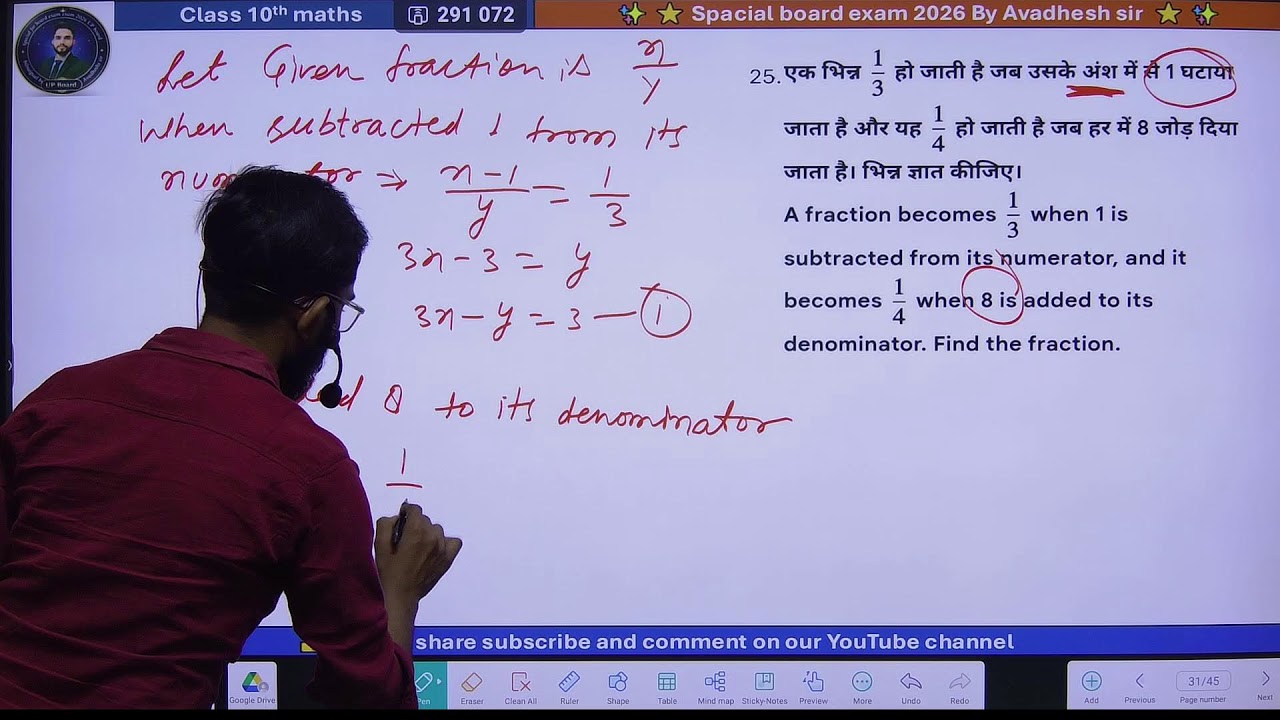 Class 10th maths
291 072
Spacial board exam 2026 By Avadhesh sir
UP Board
Let Given fraction is x/y
When subtracted 1 from its
⇒ x-1/y = 1/3
3x - 3 = y
3x - y = 3 — i
8 to its denominator
1
25. एक भिन्न 1/3 हो जाती है जब उसके अंश में से 1 घटाया
जाता है और यह 1/4 हो जाती है जब हर में 8 जोड़ दिया
जाता है। भिन्न ज्ञात कीजिए।
A fraction becomes 1/3 when 1 is
subtracted from its numerator, and it
becomes 1/4 when 8 is added to its
denominator. Find the fraction.
share subscribe and comment on our YouTube channel
Google Drive
Pen
Eraser
Clean All
Ruler
Shape
Table
Mind map
Sticky-Notes
Preview
More
Undo
Redo
Add
Previous
31/45
Page number
Next